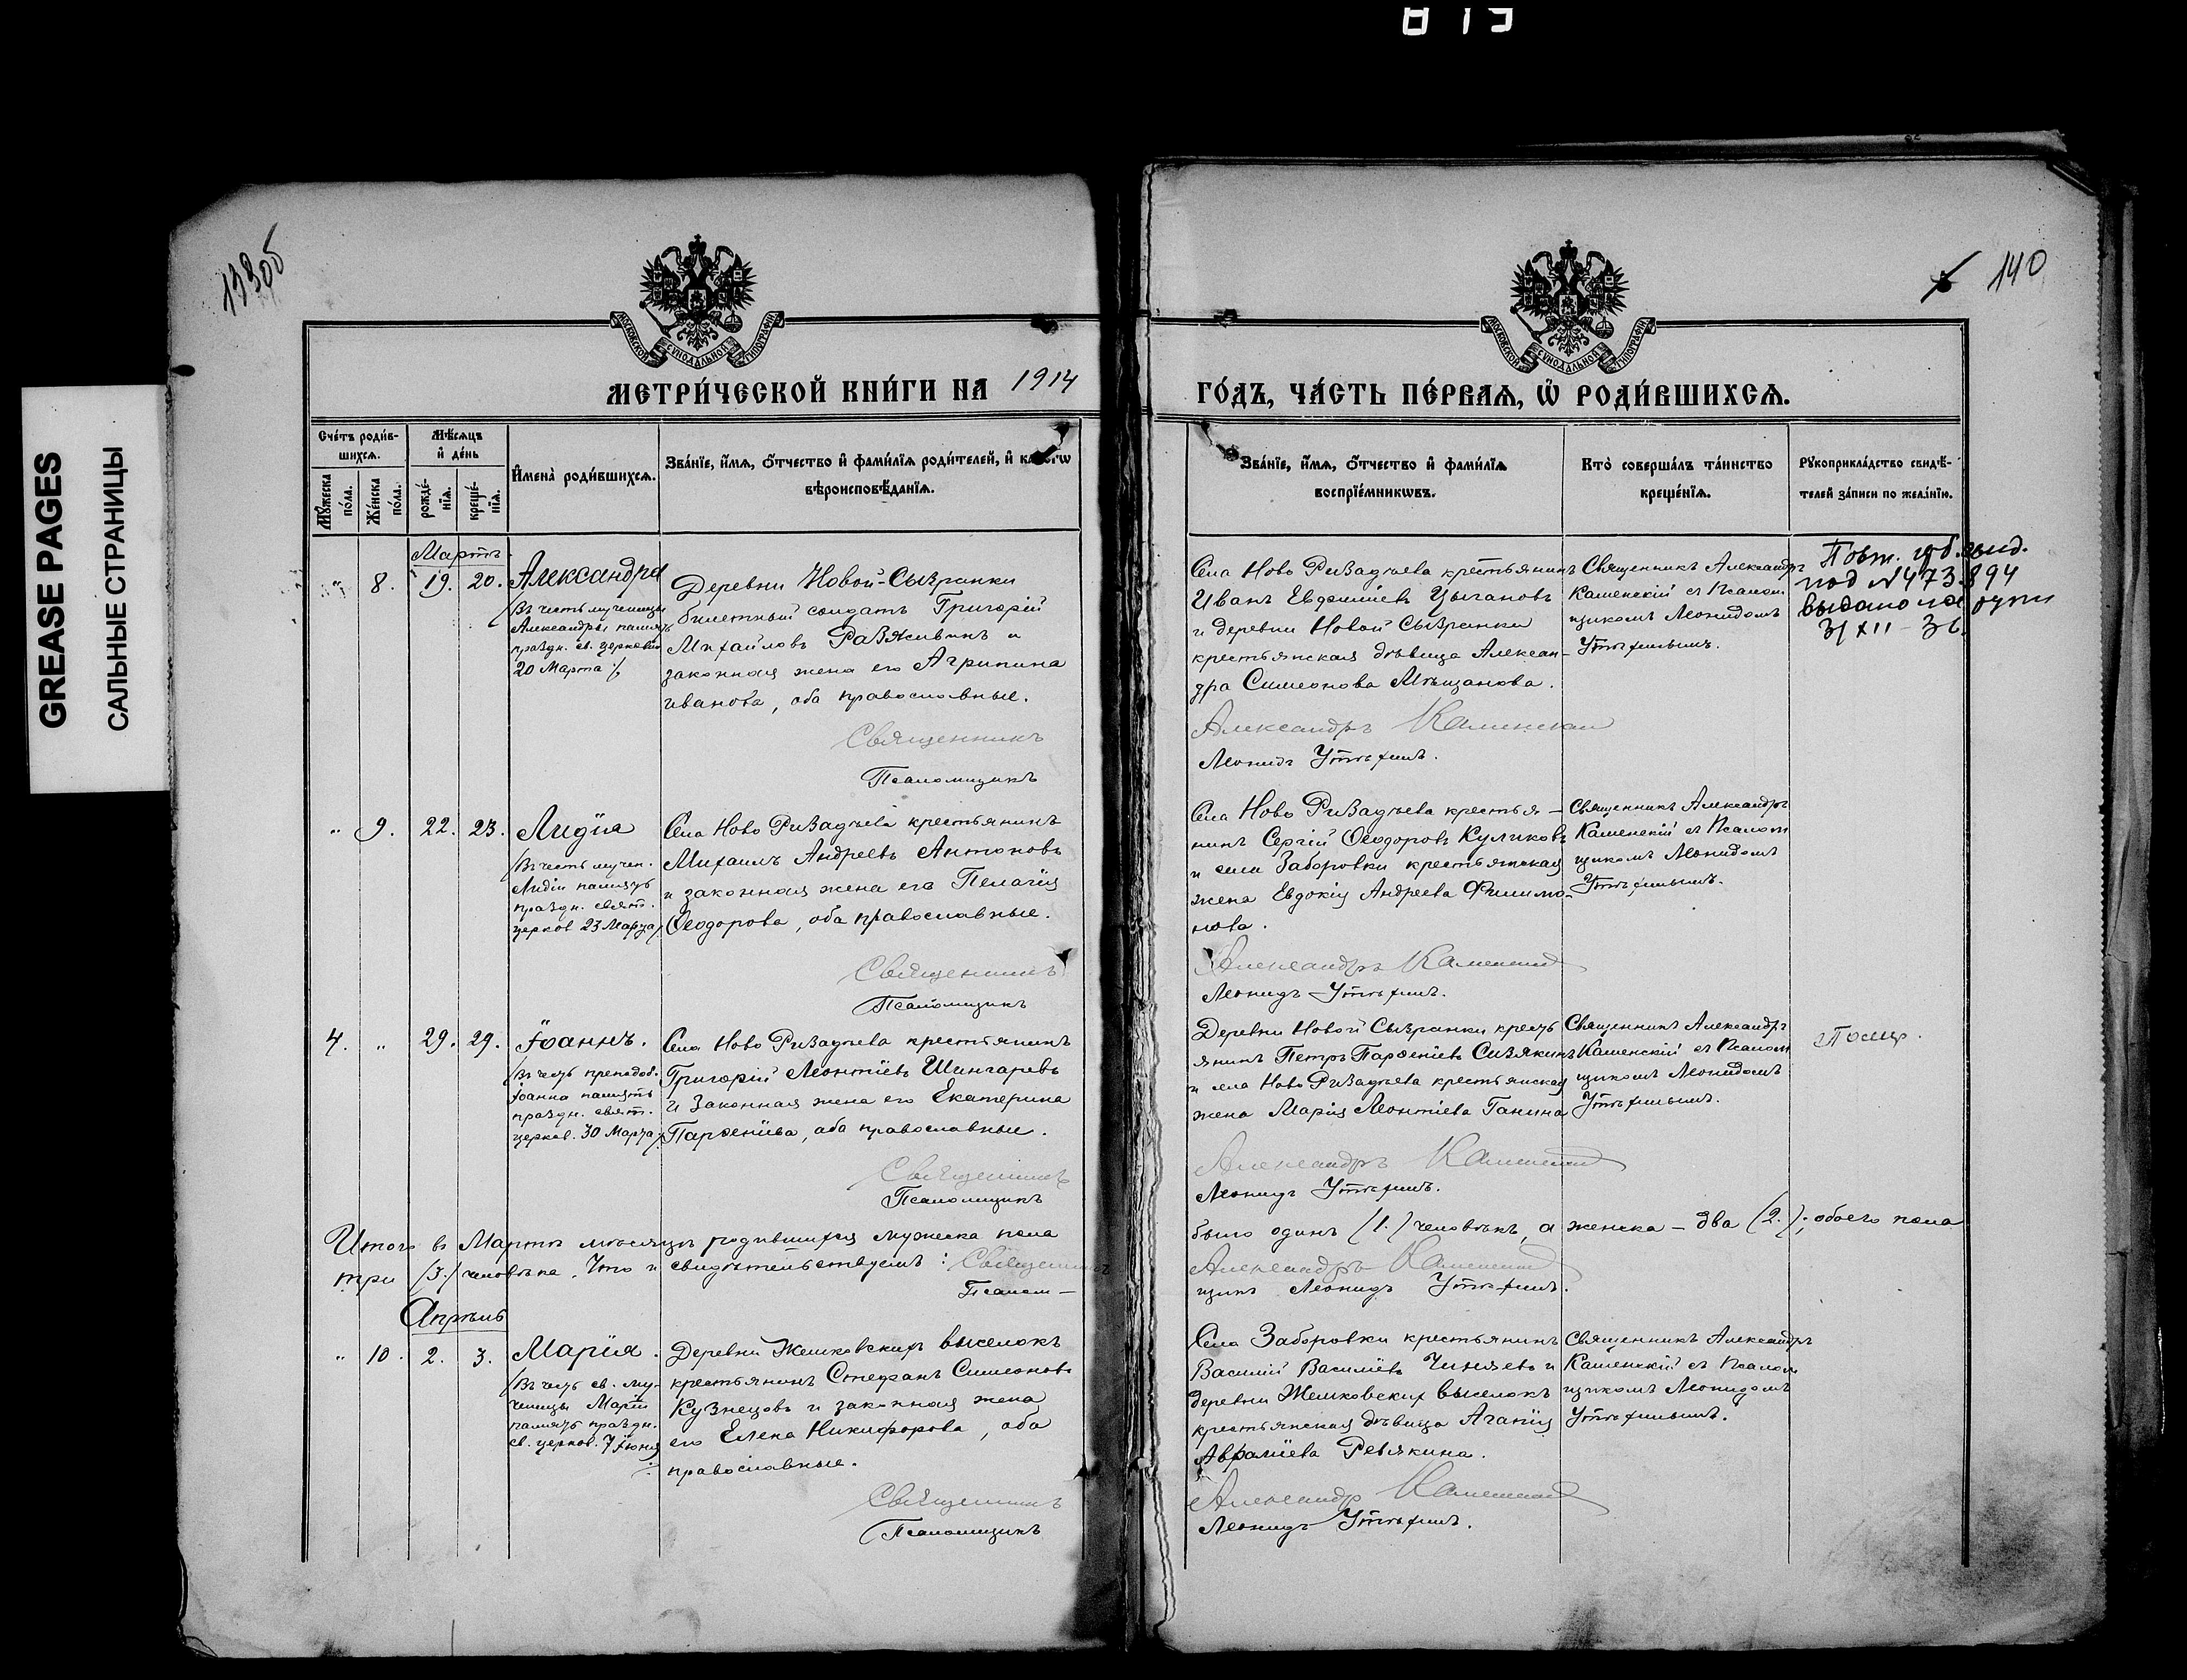 813
GREASE PAGES
САЛЬНЫЕ СТРАНИЦЫ
139об
140
МОСКОВСКОЙ СУНОДАЛЬНОЙ ТИПОГРАФІИ
МОСКОВСКОЙ СУНОДАЛЬНОЙ ТИПОГРАФІИ
МЕТРИ́ЧЕСКОЙ КНИ́ГИ НА 1914
ГО́ДЪ, ЧА́СТЬ ПЕ́РВАѦ, Ѿ РОДИ́ВШИХСѦ.
Сче́тъ роди́в-
шихсѧ.
Мꙋ́жеска по́ла.
Же́нска по́ла.
Мѣ́сѧцъ
и҆ де́нь
рожде́-
нїѧ.
креще́-
нїѧ.
И҆мена̀ роди́вшихсѧ.
Зва́нїе, и҆́мѧ, ѻ҆́тчество и҆ фами́лїѧ роди́телей, и҆ како́гѡ
вѣроисповѣ́данїѧ.
Зва́нїе, и҆́мѧ, ѻ҆́тчество и҆ фами́лїѧ
воспрїе́мникѡвъ.
Кто̀ соверша́лъ та́инство
креще́нїѧ.
Рꙋкоприкла́дство свидѣ́-
телей за́писи по жела́нїю.
Мартъ
" 8. 19. 20. Александра
/Въ честь мученицы
Александры память
праздн. св. церковію
20 Марта:/
Деревни Новой-Сызранки
билетный солдатъ Григорій
Михайловъ Развживинъ и
законная жена его Агрипина
Иванова, оба православные.
Священникъ
Псаломщикъ
Села Ново Ризадѣева крестьянинъ
Иванъ Евфиміевъ Цыгановъ
и деревни Новой Сызранки
крестьянская дѣвица Алексан-
дра Симеонова Мѣщанова.
Александръ Каменскій
Леонидъ Утѣхинъ.
Священникъ Александръ
Каменскій съ Псалом
щикомъ Леонидомъ
Утѣхинымъ.
Повт. свид.
под №473.894
выдано на руки
31 XII - 36.
" 9. 22. 23. Лидія
/Въ честь мучен.
Лидіи память
праздн. свят.
церков 23 Марта/.
Села Ново Ризадѣева крестьянинъ
Михаилъ Андреевъ Антоновъ
и законная жена его Пелагія
Ѳеодорова, оба православные.
Священникъ
Псаломщикъ
Села Ново Ризадѣева крестья-
нинъ Сергій Ѳеодоровъ Куликовъ
и села Заборовки крестьянская
жена Евдокія Андреева Филимо-
нова.
Александръ Каменскій
Леонидъ Утѣхинъ.
Священникъ Александръ
Каменскій съ Псалом
щикомъ Леонидомъ
Утѣхинымъ.
4. " 29. 29. Іоаннъ.
/Въ честь преподоб.
Іоанна память
праздн. свят.
церков. 30 Марта/.
Села Ново Ризадѣева крестьянинъ
Григорій Леонтіевъ Шингаревъ
и законная жена его Екатерина
Парѳеніева, оба православные.
Священникъ
Псаломщикъ
Деревни Новой Сызранки кресть
янинъ Петръ Парѳеніевъ Сизякинъ
и села Ново Ризадѣева крестьянская
жена Марія Леонтіева Ганина
Александръ Каменскій
Леонидъ Утѣхинъ.
Священникъ Александръ
Каменскій съ Псалом
щикомъ Леонидомъ
Утѣхинымъ.
Итого въ Мартѣ мѣсяцѣ родившихся мужеска пола
было одинъ (1.) человѣкъ, а женска - два (2.); обоего пола
три (3.) человѣка. Что и свидѣтельствуемъ: Священникъ
Александръ Каменскій
Псалом-
щикъ Леонидъ Утѣхинъ.
Апрѣль
" 10. 2. 3. Марія.
/Въ честь св. му-
ченицы Маріи
память праздн.
св. церков. 7 Іюня
Деревни Жемковскихъ выселокъ
крестьянинъ Стефанъ Симеоновъ
Кузнецовъ и законная жена
его Елена Никифорова, оба
православные.
Священникъ
Псаломщикъ
Села Заборовки крестьянинъ
Василій Василіевъ Чиняевъ и
деревни Жемковскихъ выселокъ
крестьянская дѣвица Агапія
Авраміева Ревякина.
Александръ Каменскій
Леонидъ Утѣхинъ.
Священникъ Александръ
Каменскій съ Псалом
щикомъ Леонидомъ
Утѣхинымъ.